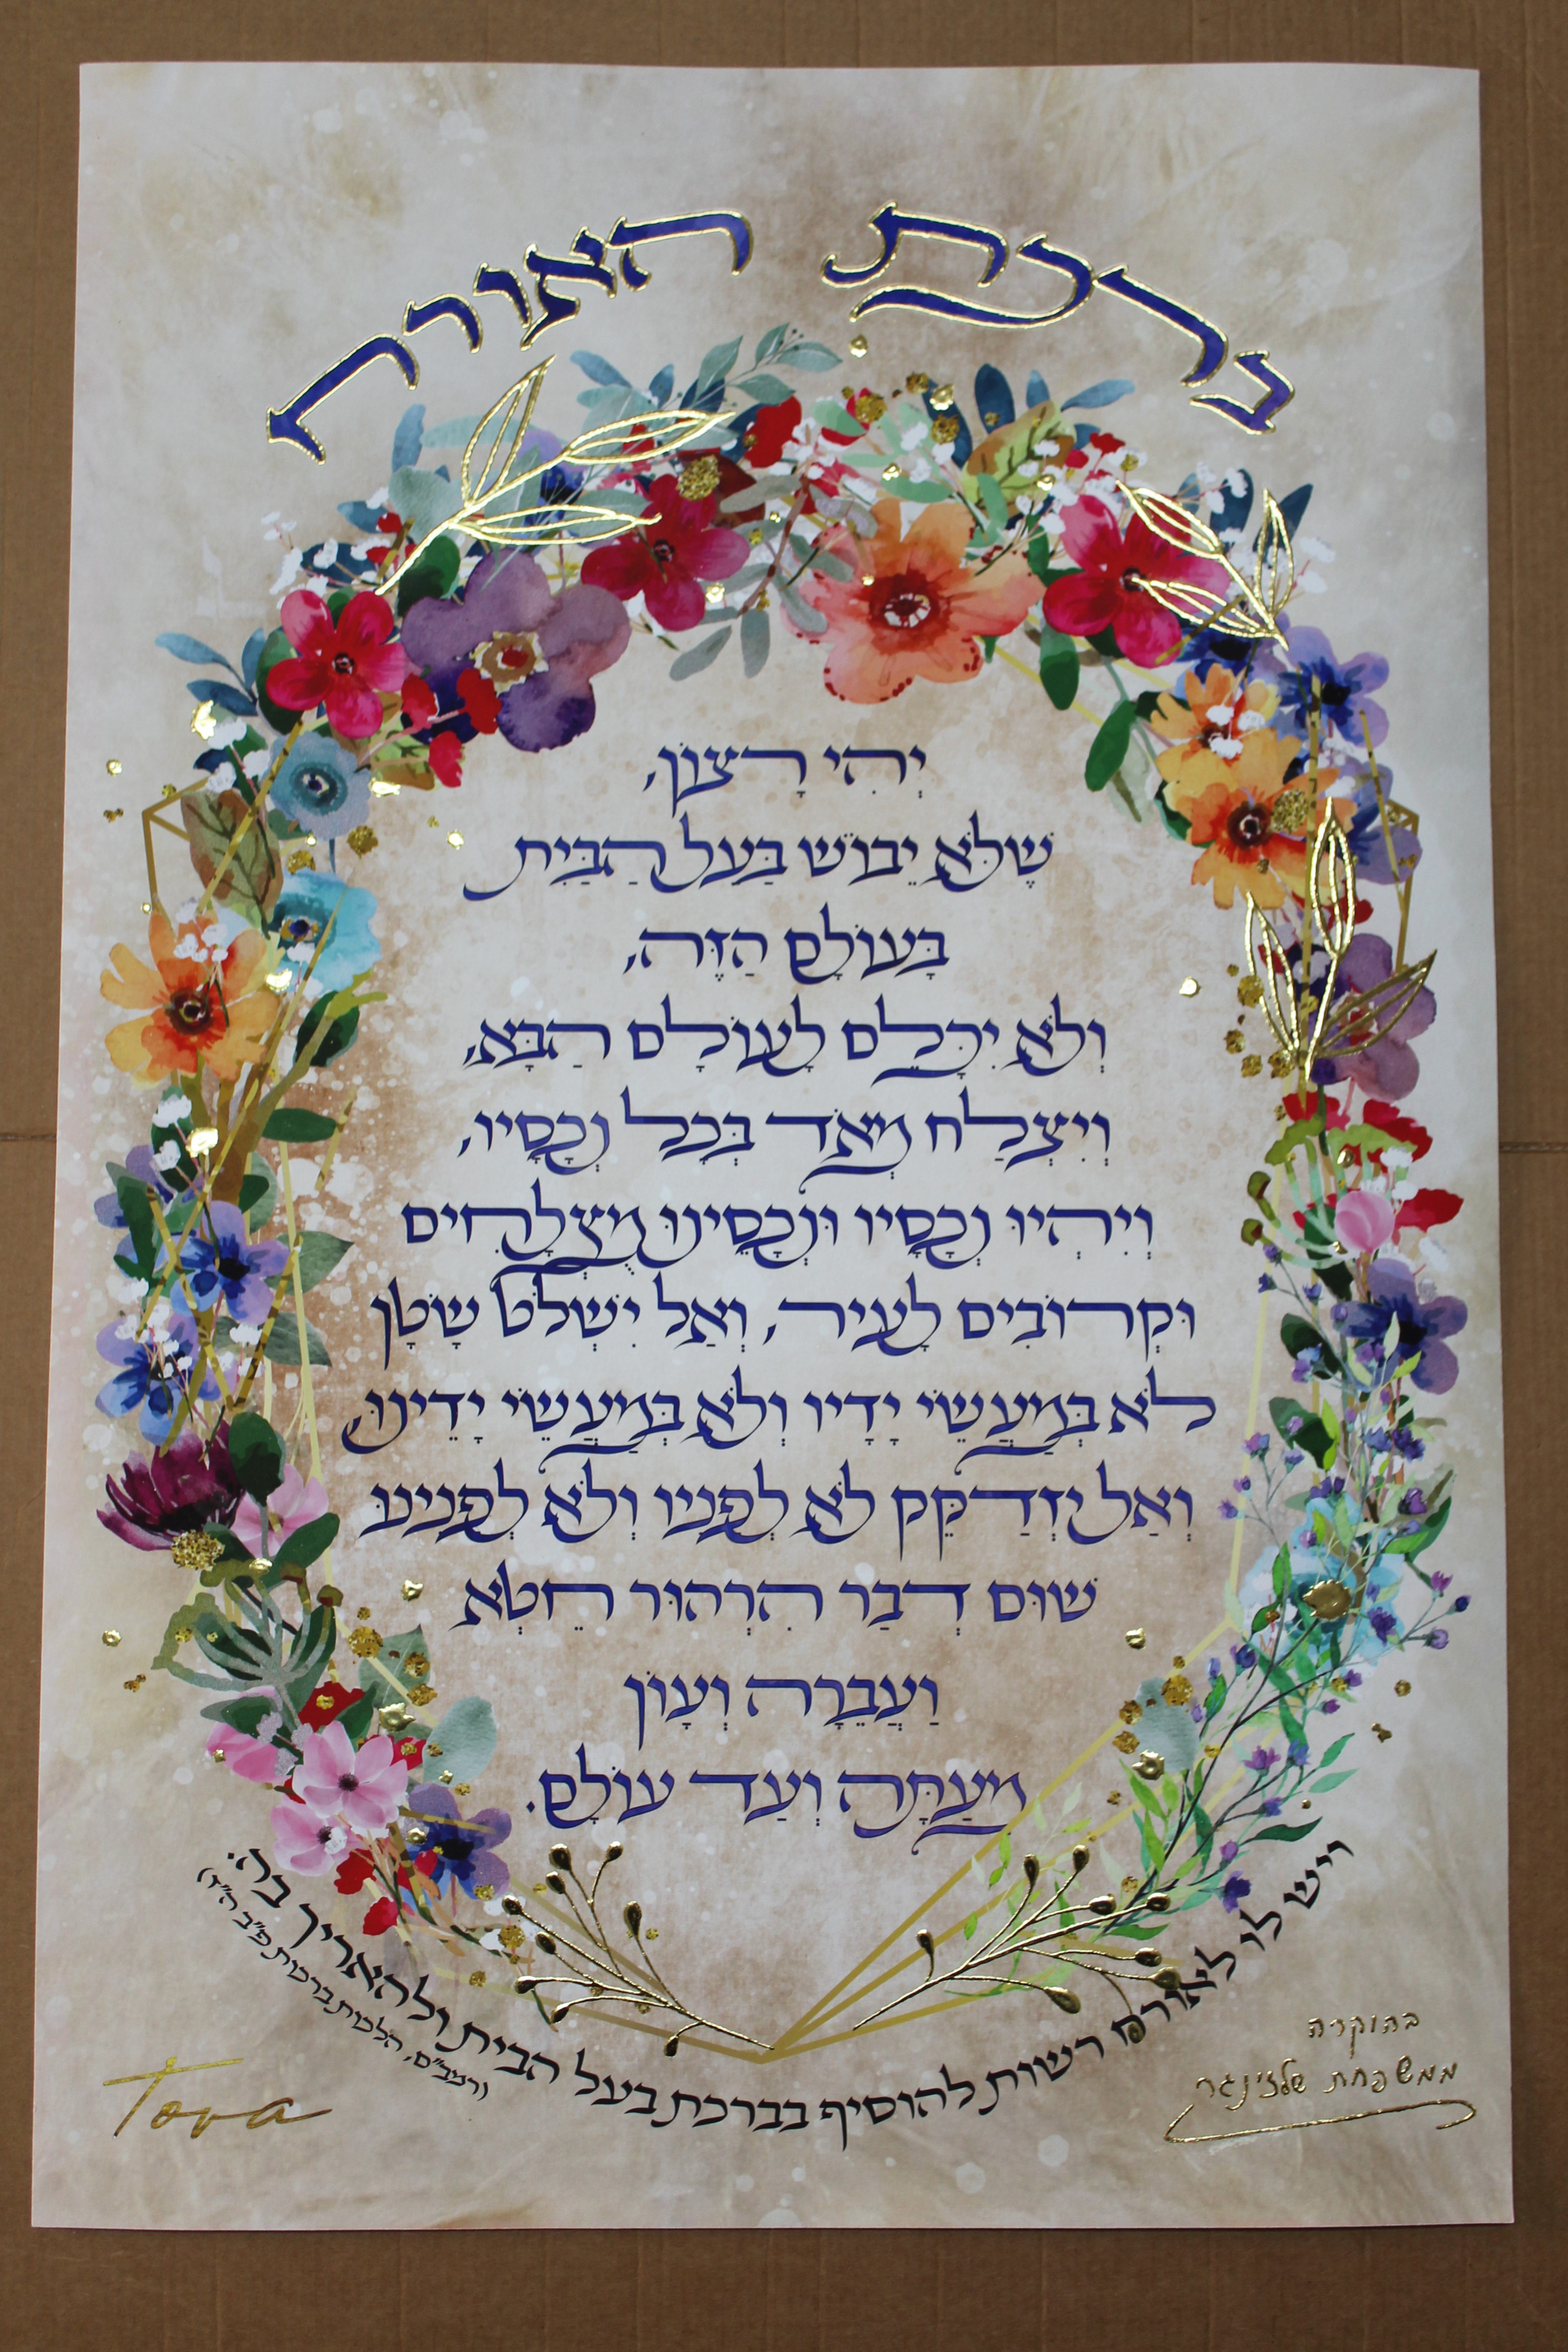 ברכת האורח
יְהִי רָצוֹן,
שֶׁלֹּא יֵבוֹשׁ בַּעַל הַבַּיִת
בָּעוֹלָם הַזֶּה,
וְלֹא יִכָּלֵם לָעוֹלָם הַבָּא,
וְיִצְלַח מְאֹד בְּכָל נְכָסָיו,
וְיִהְיוּ נְכָסָיו וּנְכָסֵינוּ מֻצְלָחִים
וּקְרוֹבִים לָעִיר, וְאַל יִשְׁלֹט שָׂטָן
לֹא בְּמַעֲשֵׂי יָדָיו וְלֹא בְּמַעֲשֵׂי יָדֵינוּ,
וְאַל יִזְדַּקֵּק לֹא לְפָנָיו וְלֹא לְפָנֵינוּ
שׁוּם דְּבַר הִרְהוּר חֵטְא
וַעֲבֵרָה וְעָוֹן
מֵעַתָּה וְעַד עוֹלָם.
ויש לו לאורח רשות להוסיף בברכת בעל הבית ולהאריך בה
ורמב"ם, הלכות ברכות פ"ב ה"ד)
בהוקרה
ממשפחת שלזינגר
Tova